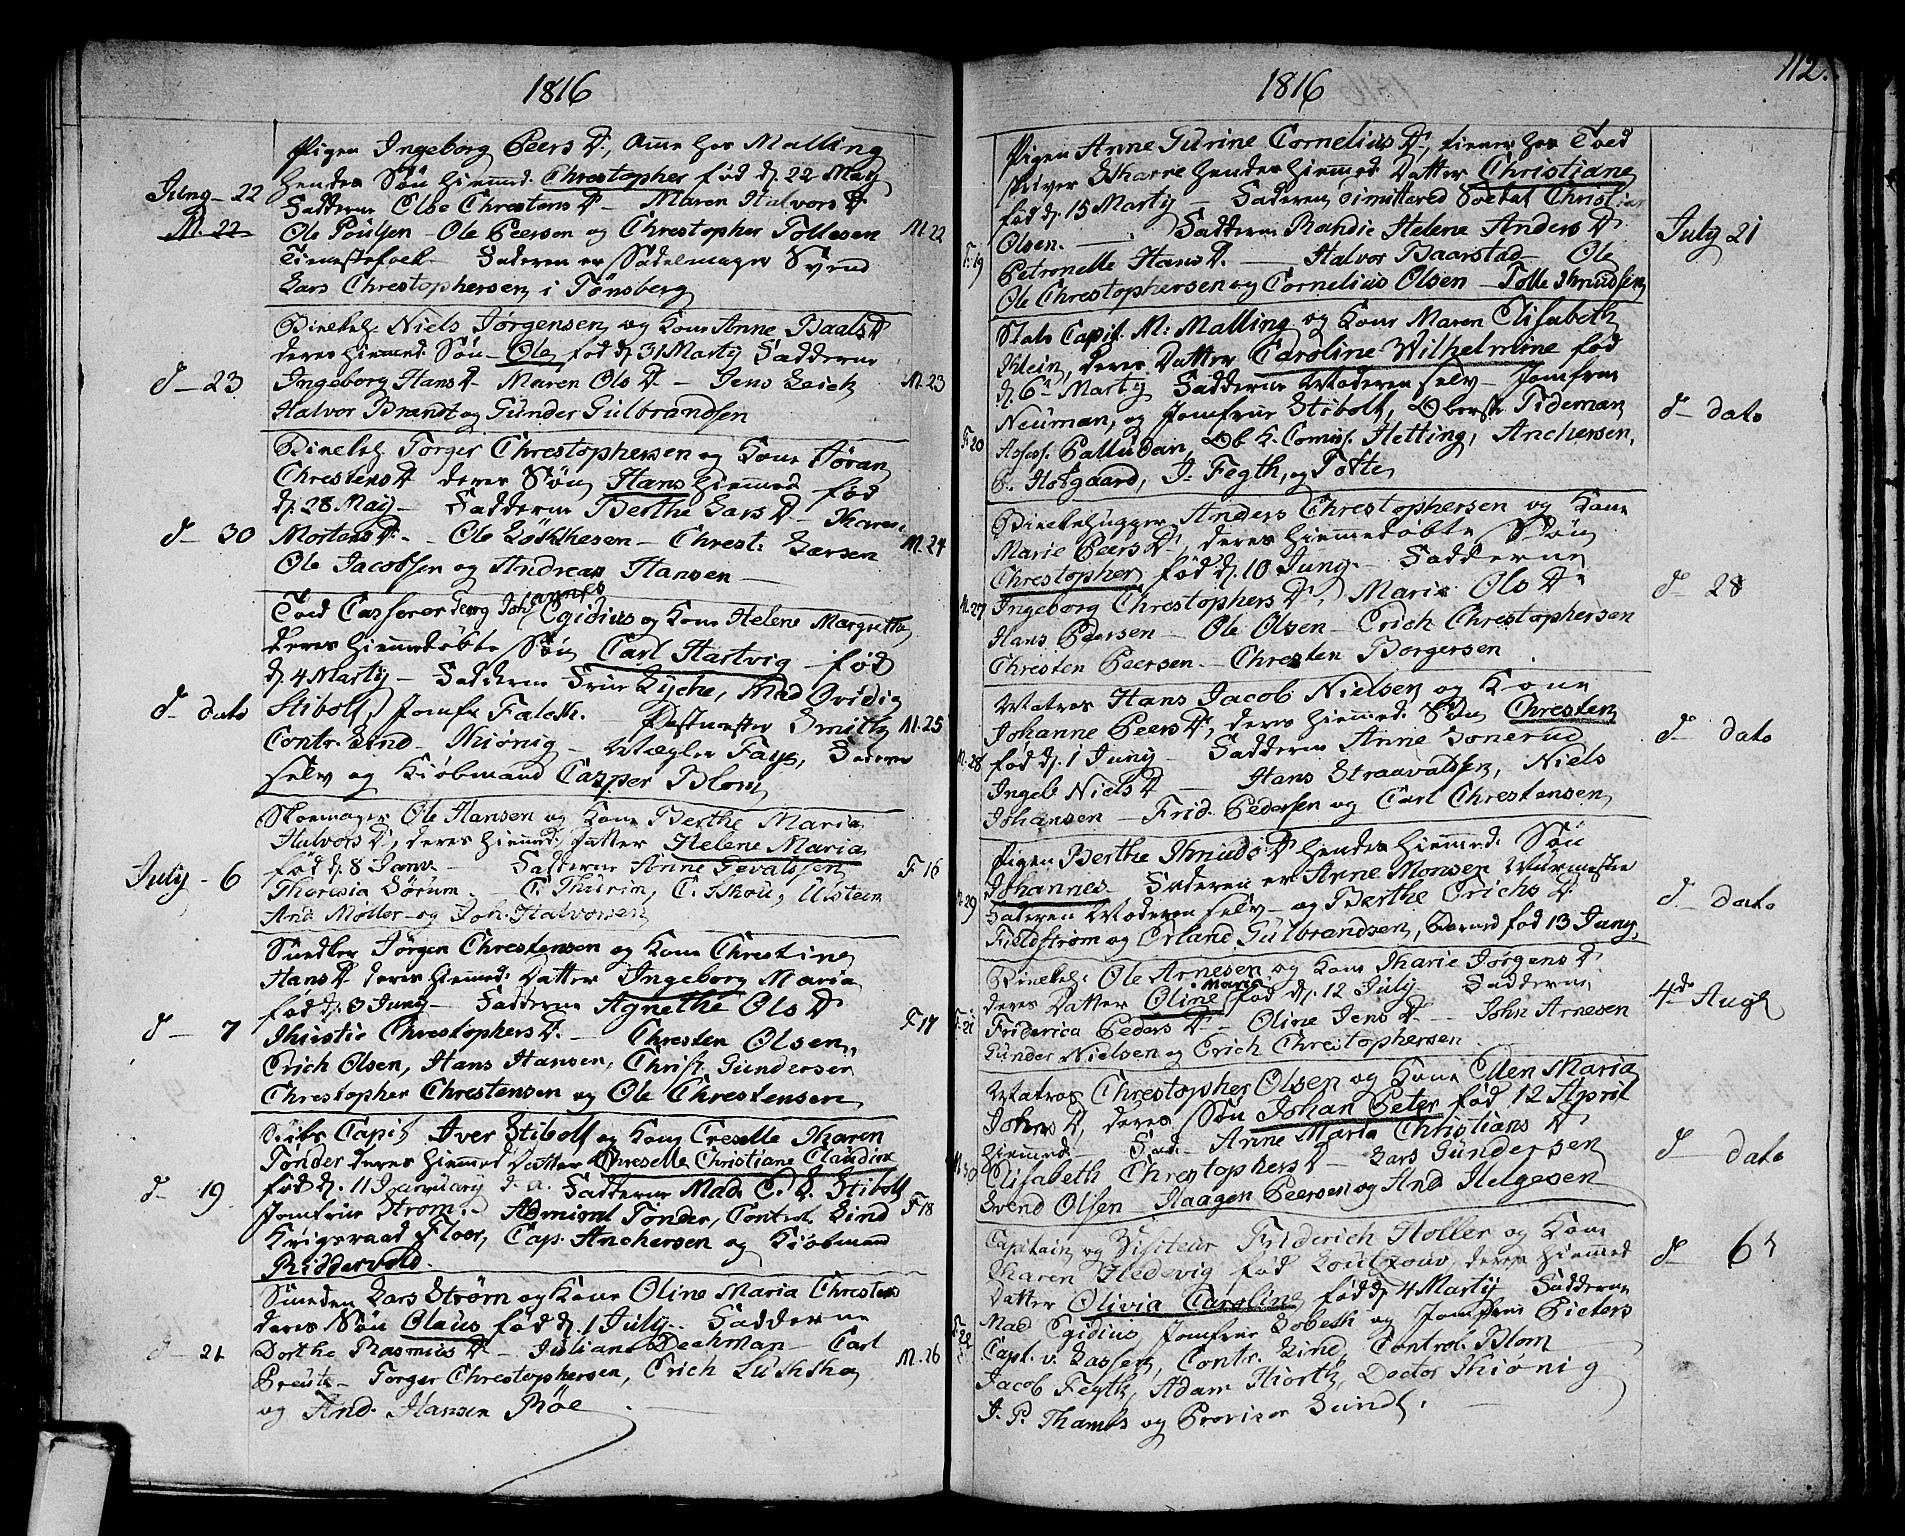 1816
Pigen Ingeborg Peers D., Ame hos Malling
Juny - 22 hendes Søn hiemmed. Christopher fød d. 22 May
Fadderne Else Chrestens D. - Maren Halvors D.
M. 22 Ole Poulsen - Ole Peersen og Christopher Tollesen M. 22
Tienestefolk - Faderen er Sadelmager Svend
Lars Chrestophersen i Tønsberg
Niels Jørgensen og Kone Anne Baals D.
deres hiemmed. Søn - Ole fød d. 31 Marty Fadderne
d - 23 Ingeborg Hans D. Maren Ols D. - Jens Leich M. 23
Halvor Brandt og Gunder Gulbrandsen
Torger Chrestophersen og Kone Jøran
Chrestens D. deres Søn Hans hiemmed fød
d. 28. May - Fadderne Berthe Lars D. - Karen
d - 30 Mortens D. - Ole Løkkesen - Chrest: Larsen M. 24
Ole Jacobsen og Andreas Hansen -
Told Casserer Georg Johannes Egidius og Kone Helene Margretha
deres hiemmedøbte Søn Carl Hartvig - fød
d. 4 Marty - Fadderne Frue Lyche, Mad Ovidia
d - dato Stibolt, Jomfr Falch. - Postmester Smith M. 25
Contr. Lind - Kiønig - Mægler Faye, Faderen
selv og Kiøbmand Casper Blom
Skomager Ole Hansen og Kone Berthe Maria
Halvors D., deres hiemmed. Datter Helene Maria
fød d. 8 Janv. - Fadderne Anne Gevaltsen
July - 6 Theresia Sørum. - C. Thurim, C. Skou, Ulstein F 16
And Møller - og Joh. Halvorsen
Snedker Jørgen Chrestensen og Kone Chrestine
Hans D. deres hiemmed. Datter Ingeborg Maria
fød d. 3 Juny - Fadderne Agnethe Ols D.
d - 7 Kirstie Chrestophers D. - Chresten Olsen, F 17
Erich Olsen, Hans Hansen, Christ. Gundersen
Christopher Chrestensen og Ole Chrestensen
Skibs Capit Iver Stibolt og Kone Creselle Maren
Tønder deres hiemmed Datter Chreselle Christiane Claudine
fød d. 11 January d. a. Fadderne Mad. C. D. Stibolt
d - 19. Jomfrue Strøm - Admiral Tønder, Control. Lind F 18
Krigsraad Floer, Cap. Anchersen og Kiøbmand
Riddervold.
Smeden Lars Strøm og Kone Oline Maria Chrestens
deres Søn Olaus fød d. 1 July. Fadderne
d - 21 Dorthe Rasmus D. - Juliane Dechman - Carl M. 26
Preuts - Torger Chrestophersen, Erich
og And. Hansen Røe
112.
1816
Pigen Anne Gurine Cornelius D., tiener hos Told
skriver hendes hiemmed Datter Christiane
fød d. 15 Marty - Faderen dimittered Soldat Christian
Olsen. - Fadderne Randie Helene Anders D. July 21
F. 19 Petronelle Hans D. - Halvor Baarstad - Ole
Ole Chrestophersen og Cornelius Olsen - Tolle Knudsen
Capit. M: Malling og Kone Maren Elisabeth
Klein, deres Datter Caroline Wilhelmine fød
d. 6te Marty Fadderne Moderen selv - Jomfrue
Neuman, og Jomfrue Stibolt, Oberste Tideman d - dato
F. 20 Assess. Palludan, Ob. K. Comiss. Hetting, Anchersen,
P. Hofgaard, J. Fegth, og Tofte
Anders Chrestophersen og Kone
Marie Peers D., deres hiemmedøbte Søn
Chrestopher fød d. 10 Juny. - Fadderne
M. 27 Ingeborg Chrestophers D., Marie Ols D. d - 28
Hans Pedersen - Ole Olsen - Erich Chrestophersen
Chresten Peersen. - Chresten Borgersen
Matros Hans Jacob Nielsen og Kone
Johanne Peers D., deres hiemmed. Søn Chresten
M. 28 fød d. 1 Juny - Fadderne Anne Gonerud d - dato
Ingeb Niels D. - Hans Straavaldsen, Niels
Johansen Frid. Pedersen og Carl Chrestensen
Pigen Berthe Knuds D. hendes hiemmed. Søn
Johannes. Faderen er Arne Monsen Murmester
29 Fadderne Moderen selv - og Berthe Erichs D. d - dato
Fieldstrøm og Erland Gulbrandsen, Barnet fød 13 Juny.
Ole Arnesen og Kone Marie Jørgens D.
deres Datter Oline Maria fød d. 12 July Fadderne 4de Aug
F. 21 Friderica Peders D. - Oline Jens D. - John Arnesen
Gunder Nielsen og Erich Chrestophersen
Matros Chrestopher Olsen og Kone Ellen Maria
Johns D., deres Søn Johan Peter fød 12 April
hiemmed. - Fad. Anne Maria Christians D. d - dato
M. 30 Elisabeth Chrestophers D. - Lars Gundersen
Svend Olsen - Haagen Peersen og And Helgesen
Capitain og Visiteur Friderich Holler og Kone
Maren Hedevig fød Loutzouv deres hiemmed d - 6te
Datter Olivia Caroline fød d. 4 Marty Fadderne
F. 22 Mad Egidius Jomfrue Lobeth og Jomfrue Pieters
Capt. v. Lassen, Contr. Lind, Control. Blom
Jacob Fegth, Adam Hiorth, Doctor Kiønig
J. P. Thams og Provisor Lund.